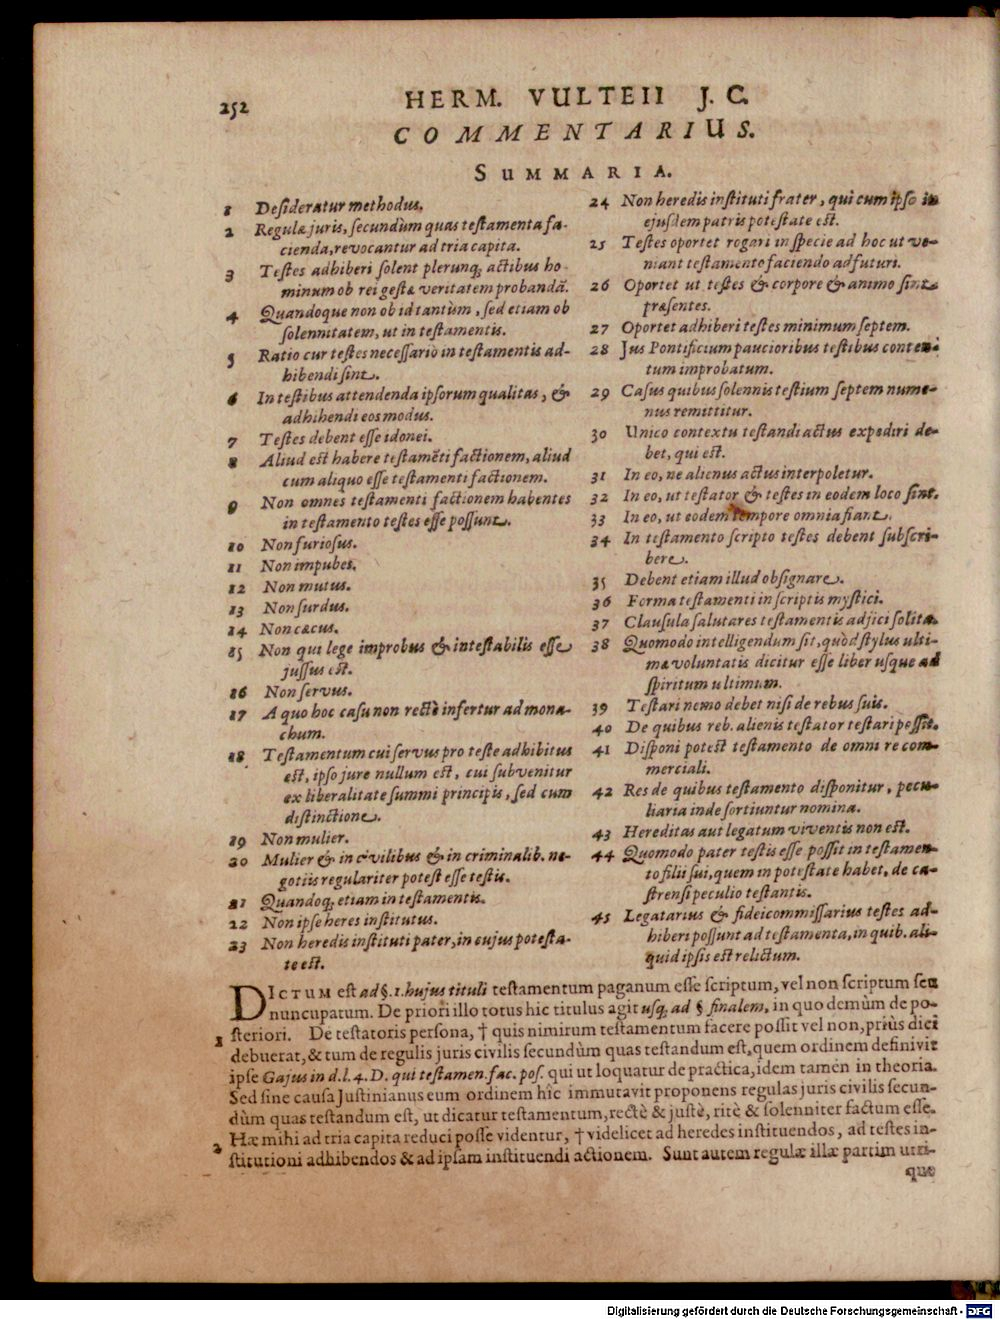 252
HERM. VULTEII J. C.
COMMENTARIUS.
SUMMARIA.
1 Desideratur methodus.
2 Regulæ juris, secundùm quas testamenta fa-
cienda, revocantur ad tria capita.
3 Testes adhiberi solent plerunq; actibus ho
minum ob rei gestæ veritatem probandā.
4 Quandoque non ob id tantùm, sed etiam ob
solennitatem, ut in testamentis.
5 Ratio cur testes necessariò in testamentis ad-
hibendi sint.
6 In testibus attendenda ipsorum qualitas, &
adhihendi eos modus.
7 Testes debent esse idonei.
8 Aliud est habere testamēti factionem, aliud
cum aliquo esse testamenti factionem.
9 Non omnes testamenti factionem habentes
in testamento testes esse possunt.
10 Non furiosus.
11 Non impubes.
12 Non mutus.
13 Non surdus.
14 Non cæcus.
15 Non qui lege improbus & intestabilis esse
jussus est.
16 Non servus.
17 A quo hoc casu non rectè infertur ad mona-
chum.
18 Testamentum cui servus pro teste adhibitus
est, ipso jure nullum est, cui subvenitur
ex liberalitate summi principis, sed cum
distinctione.
19 Non mulier.
20 Mulier & in civilibus & in criminalib. ne-
gotiis regulariter potest esse testis.
21 Quandoq; etiam in testamentis.
22 Non ipse heres institutus.
23 Non heredis instituti pater, in cujus potesta-
te est.
24 Non heredis instituti frater, qui cum ipso in
ejusdem patris potestate est.
25 Testes oportet rogari in specie ad hoc ut ve-
niant testamento faciendo adfuturi.
26 Oportet ut testes & corpore & animo sint
præsentes.
27 Oportet adhiberi testes minimum septem.
28 Jus Pontificium paucioribus testibus conten-
tum improbatum.
29 Casus quibus solennis testium septem nume-
nus remittitur.
30 Unico contextu testandi actus expediri de-
bet, qui est.
31 In eo, ne alienus actus interpoletur.
32 In eo, ut testator & testes in eodem loco sint.
33 In eo, ut eodem tempore omnia fiant.
34 In testamento scripto testes debent subscri-
bere.
35 Debent etiam illud obsignare.
36 Forma testamenti in scriptis mystici.
37 Clausula salutares testamentis adjici solita.
38 Quomodo intelligendum sit, quòd stylus ulti-
mæ voluntatis dicitur esse liber usque ad
spiritum ultimum.
39 Testari nemo debet nisi de rebus suis.
40 De quibus reb. alienis testator testari possit.
41 Disponi potest testamento de omni re com-
merciali.
42 Res de quibus testamento disponitur, pecu-
liaria inde sortiuntur nomina.
43 Hereditas aut legatum viventis non est.
44 Quomodo pater testis esse possit in testamen-
to filii sui, quem in potestate habet, de ca-
strensi peculio testantis.
45 Legatarius & fideicommissarius testes ad-
hiberi possunt ad testamenta, in quib. ali-
quid ipsis est relictum.
DICTUM est ad §. 1. hujus tituli testamentum paganum esse scriptum, vel non scriptum seu
nuncupatum. De priori illo totus hic titulus agit usq; ad § finalem, in quo demùm de po-
1 steriori. De testatoris persona, † quis nimirum testamentum facere possit vel non, priùs dici
debuerat, & tum de regulis juris civilis secundùm quas testandum est, quem ordinem definivit
ipse Gajus in d. l. 4. D. qui testamen. fac. pos. qui ut loquatur de practica, idem tamen in theoria.
Sed sine causa Justinianus eum ordinem hîc immutavit proponens regulas juris civilis secun-
dùm quas testandum est, ut dicatur testamentum, rectè & justè, ritè & solenniter factum esse.
2 Hæ mihi ad tria capita reduci posse videntur, † videlicet ad heredes instituendos, ad testes in-
stitutioni adhibendos & ad ipsam instituendi actionem. Sunt autem regulæ illæ partim utri-
que
Digitalisierung gefördert durch die Deutsche Forschungsgemeinschaft - DFG